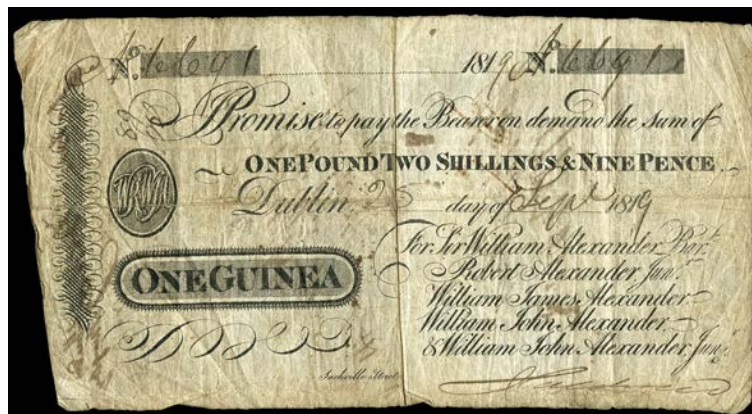 No. 6691 1819 No. 6691
I Promise to pay the Bearer on demand the Sum of
ONE POUND TWO SHILLINGS & NINE PENCE
Dublin, 25 day of Sept 1819
For Sir William Alexander Bart.
Robert Alexander Junr.
ONE GUINEA
William James Alexander
William John Alexander
& William John Alexander, Junr.
Sackville Street